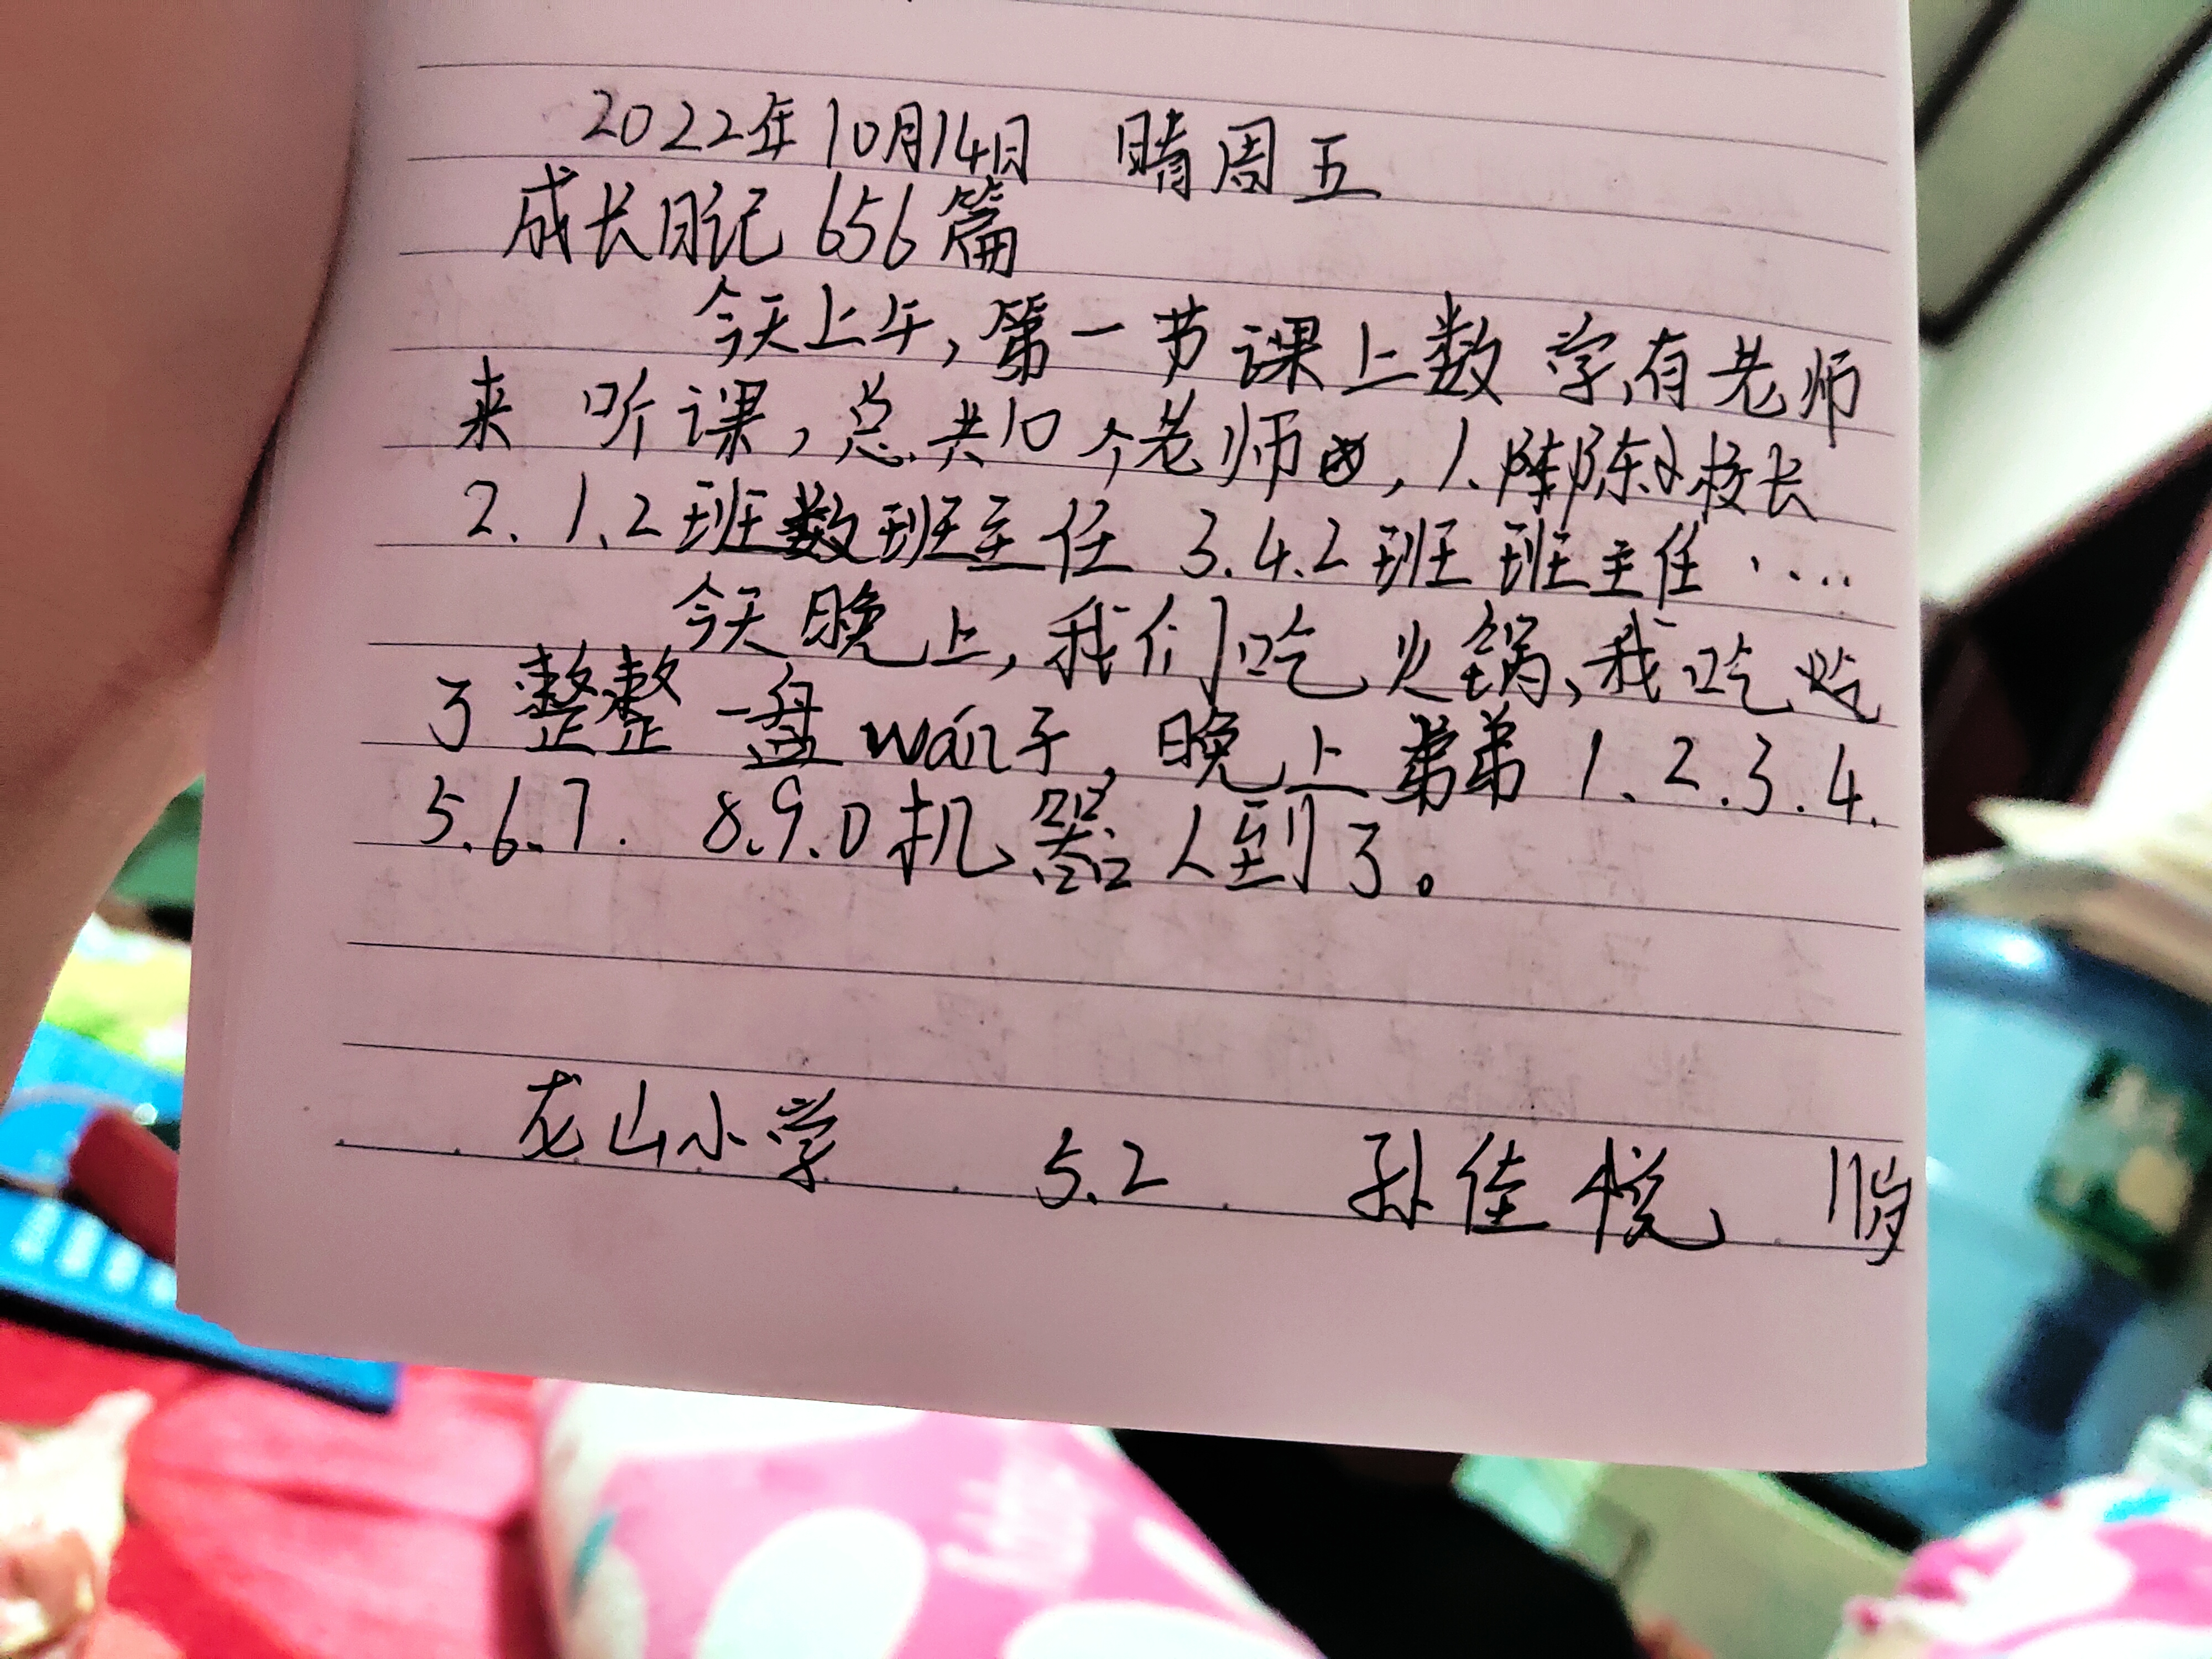 2022年10月14日 晴周五
成长日记656篇
今天上午,第一节课上数学,有老师
来听课,总共10个老师,1、陈校长
2、1、2班数班主任 3.4.2班班主任····
今天晚上,我们吃火锅,我吃
了整整一盘wán子,晚上弟弟1、2.3.4.
5.6.7. 8.9.0机器人到了。
龙山小学 5.2 孙佳悦 11岁